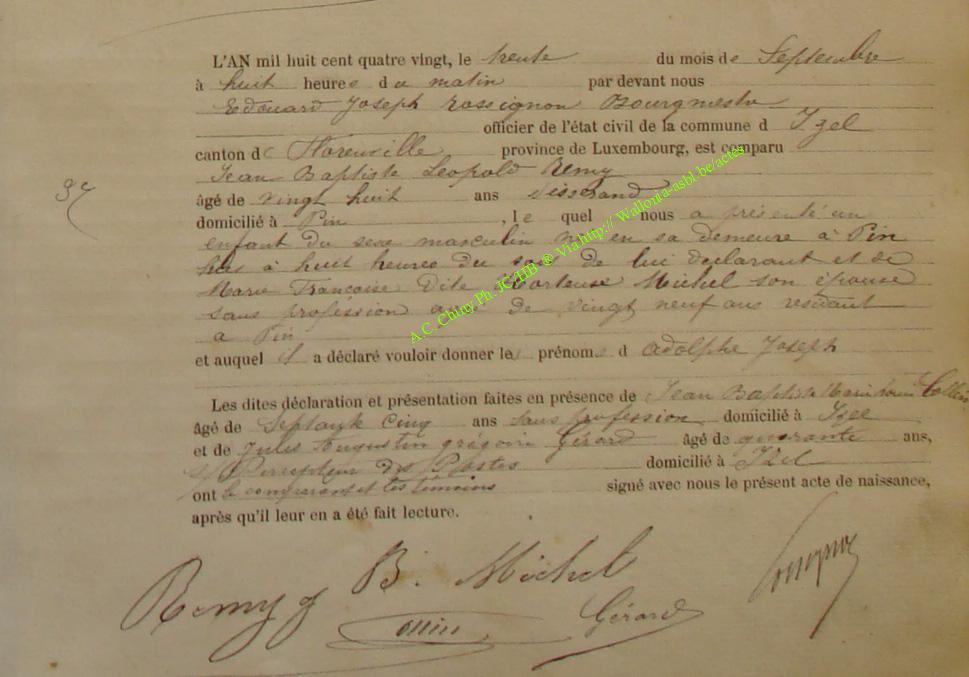 L'AN mil huit cent quatre vingt, le trente du mois de Septembre
à huit heures du matin par devant nous
Edouard Joseph Rossignon Bourgmestre
officier de l'état civil de la commune d Izel
canton de Florenville province de Luxembourg, est comparu
Jean Baptiste Leopold Remy
âgé de vingt huit ans Tisserand
domicilié à Pin, le quel nous a présenté un
enfant du sexe masculin né en sa demeure à Pin
hier à huit heures du soir de lui déclarant et de
Marie Françoise Dite Hortense Michel son épouse
sans profession agée de vingt neuf ans residant
a Pin
et auquel il a déclaré vouloir donner les prénoms d Adolphe Joseph
Les dites déclaration et présentation faites en présence de Jean Baptiste Collin
âgé de Septante Cinq ans sans profession domicilié à Izel
et de Jules Augustin grégoire Gérard âgé de quarante ans,
Percepteur des Postes domicilié à Izel
ont le comparant et les témoins signé avec nous le présent acte de naissance,
après qu'il leur en a été fait lecture.
Remy J B. Michel
Gérard
A.C. Chiny Ph. JCHB ® Via http:// Wallonia-asbl.be/actes